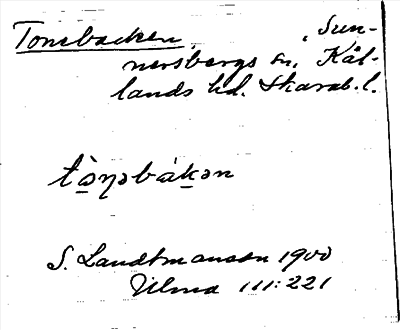 Tonebacken, Sun-
nersbergs sn, Kål-
lands hd. Skarab. l.
tò̱ŋəbák̲ən
S. Landtmanson 1900
Ulma 111:221